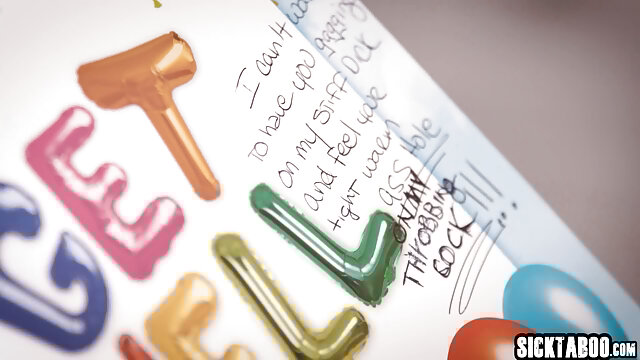 GET
WELL
I can't wait
to have you gagging
on my stiff cock
and feel your
tight warm
asshole
ON MY
THROBBING
COCK!!!...
SICKTABOO.COM